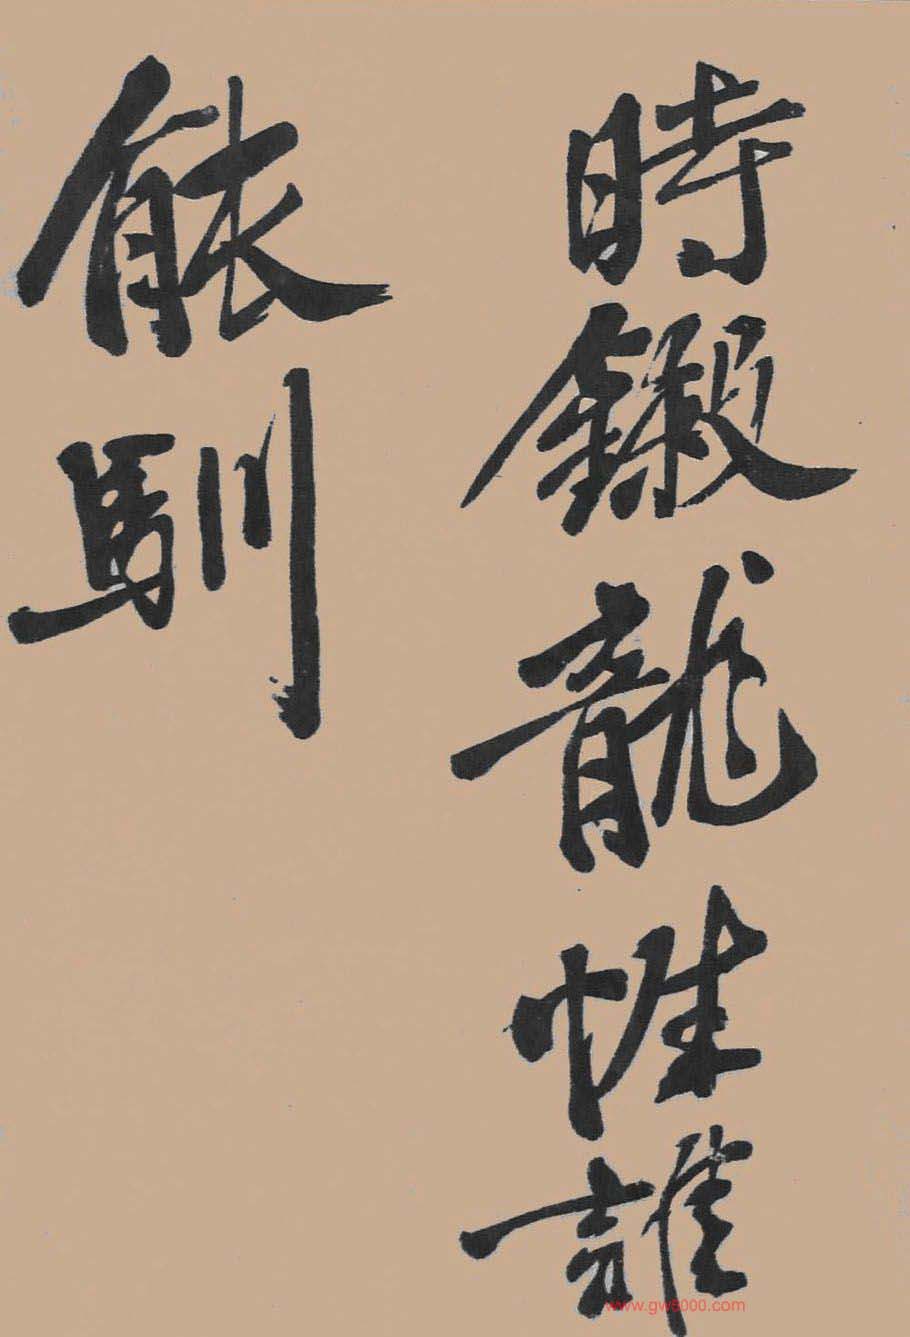 時鎩龍性誰
能馴
www.gw8000.com